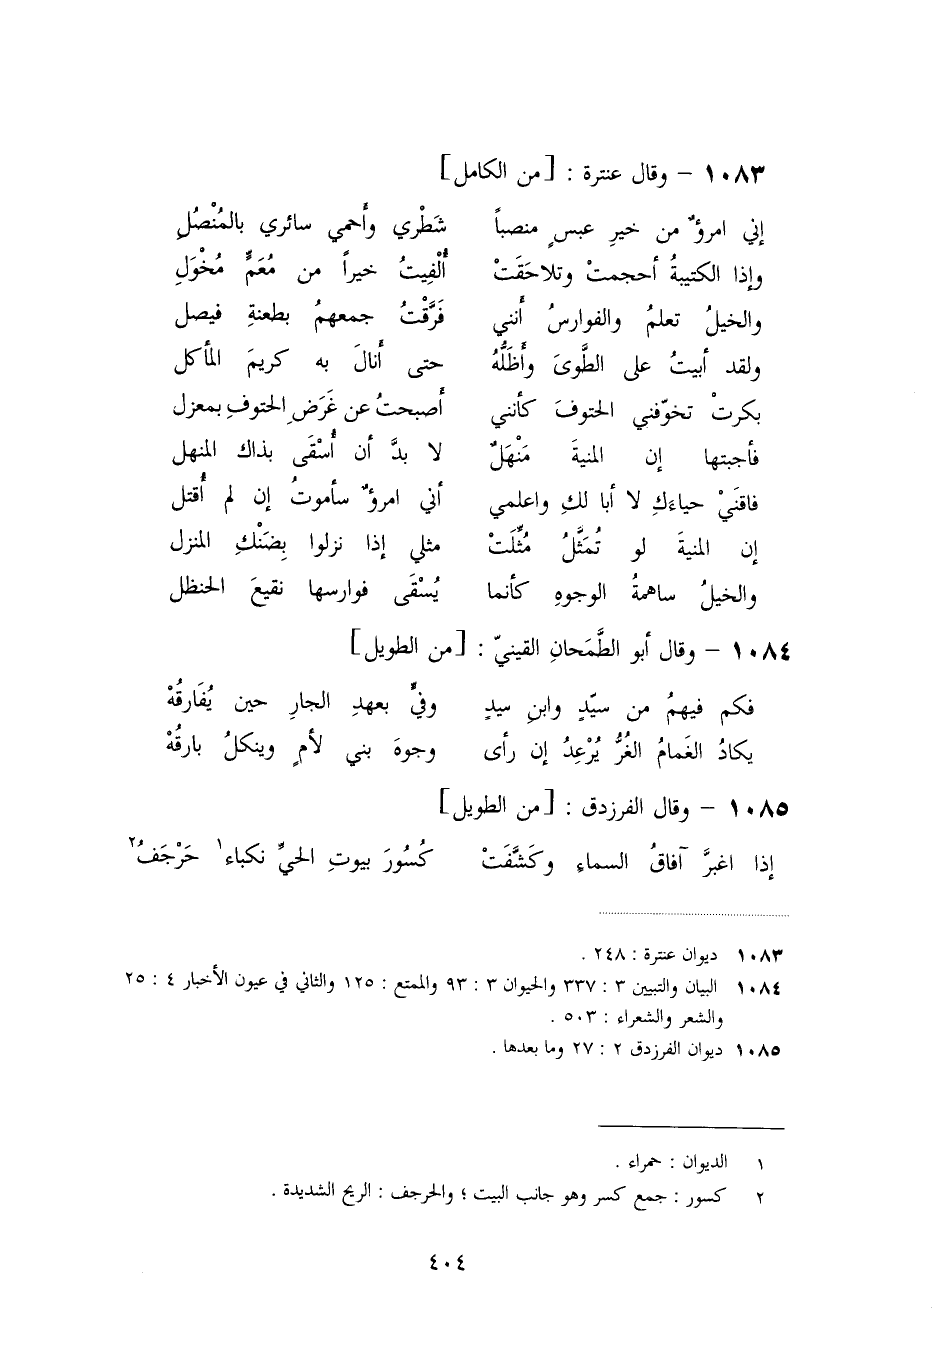 ١٠٨٣ – وقال عنترة : [من الكامل]
إني امرؤٌ من خيرِ عبسٍ منصباً شَطْري وأَحمي سائري بالمُنْصُلِ
وإذا الكتيبةُ أحجمتْ وتلاحَقَتْ أُلْفِيتُ خيراً من مُعَمٍّ مُخْوَلِ
والخيلُ تعلمُ والفوارسُ أَنني فَرَّقْتُ جمعهمُ بطعنةِ فيصل
ولقد أبيتُ على الطَّوىَ وأَظَلُّهُ حتى أَنالَ به كريمَ المأكل
بكرتْ تخوّفني الحتوفَ كأنني أَصبحتُ عن غَرَضِ الحتوفِ بمعزل
فأجبتها إن المنيةَ مَنْهَلٌ لا بدَّ أن أُسْقَى بذاك المنهل
فاقنَيْ حياءَكِ لا أبا لكِ واعلمي أني امرؤٌ سأموتُ إن لم أُقتل
إن المنيةَ لو تُمَثَّلُ مُثِّلَتْ مثلي إذا نزلوا بِضَنْكِ المنزل
والخيلُ ساهمةُ الوجوهِ كأنما يُسْقَى فوارسها نقيعَ الحنظل
١٠٨٤ – وقال أبو الطَّمَحانِ القينيّ : [من الطويل]
فكم فيهمُ من سيّدٍ وابنِ سيدٍ وفيٍّ بعهدِ الجارِ حين يُفَارِقُهْ
يكادُ الغَمامُ الغُرُّ يُرْعِدُ إن رأى وجوهَ بني لأمٍ وينكلُ بارقُهْ
١٠٨٥ – وقال الفرزدق : [من الطويل]
إذا اغبرَّ آفاقُ السماءِ وكَشَّفَتْ كُسُورَ بيوتِ الحيِّ نكباء١ حَرْجَفُ٢
١٠٨٣ ديوان عنترة : ٢٤٨ .
١٠٨٤ البيان والتبيين ٣ : ٣٣٧ والحيوان ٣ : ٩٣ والممتع : ١٢٥ والثاني في عيون الأخبار ٤ : ٢٥
والشعر والشعراء : ٥٠٣ .
١٠٨٥ ديوان الفرزدق ٢ : ٢٧ وما بعدها .
١ الديوان : حمراء .
٢ كسور : جمع كسر وهو جانب البيت ؛ والحرجف : الريح الشديدة .
٤٠٤